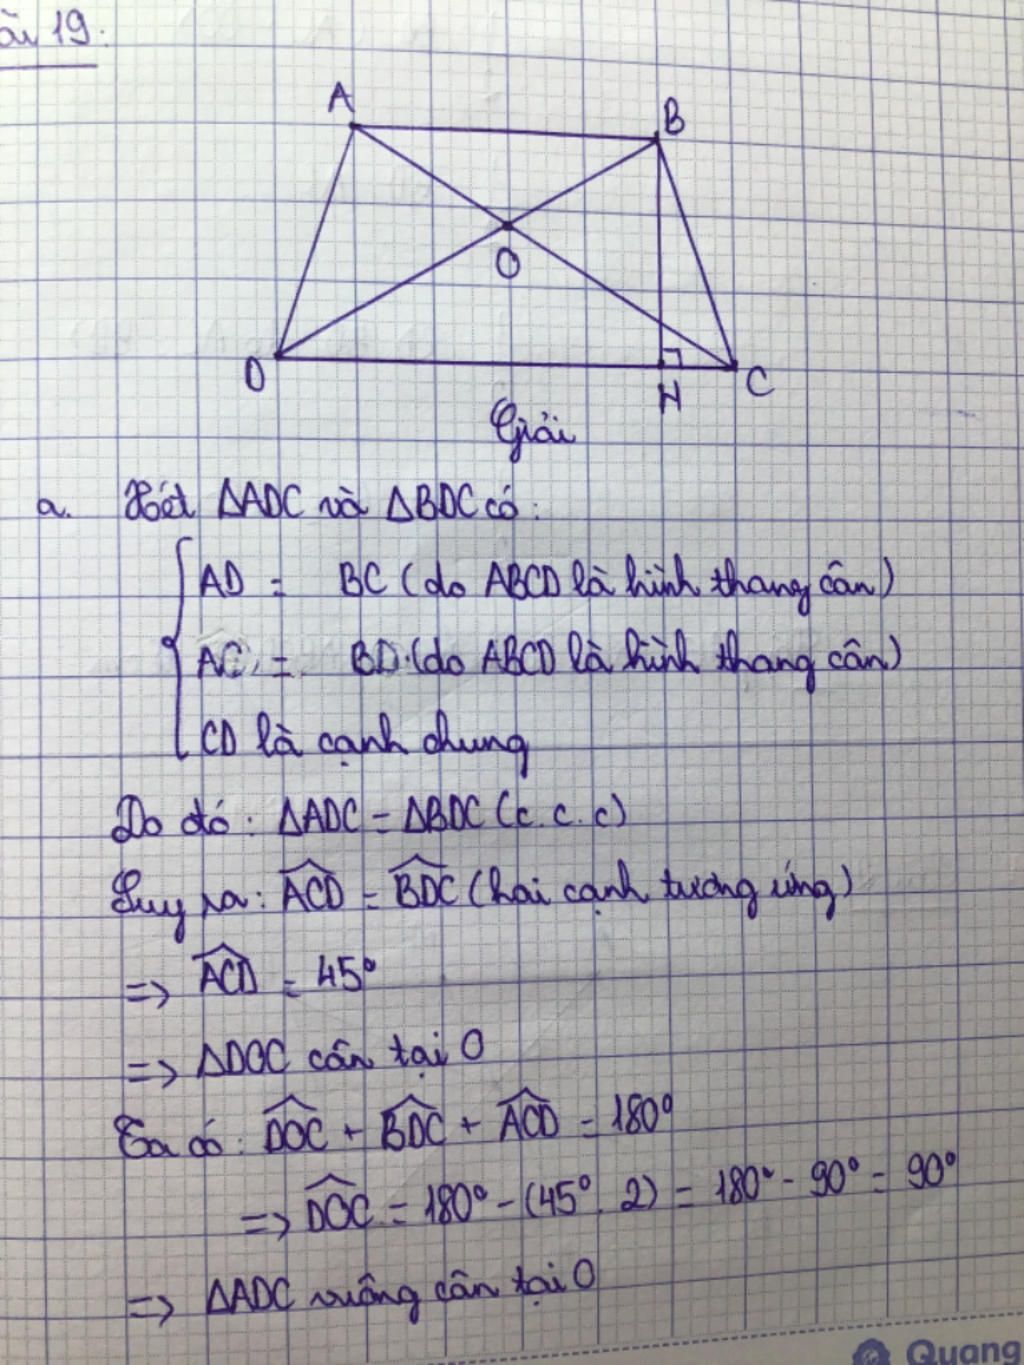 ài 19:
A
B
O
D
H
C
Giải
a. Xét ΔADC và ΔBDC có:
AD = BC (do ABCD là hình thang cân)
AC = BD (do ABCD là hình thang cân)
CD là cạnh chung
Do đó: ΔADC = ΔBDC (c.c.c)
Suy ra: \widehat{ACD} = \widehat{BDC} (hai cạnh tương ứng)
=> \widehat{ACD} = 45°
=> ΔDOC cân tại O
Ta có: \widehat{DOC} + \widehat{BDC} + \widehat{ACD} = 180°
=> \widehat{DOC} = 180° - (45°. 2) = 180° - 90° = 90°
=> ΔADC vuông cân tại O
Quang